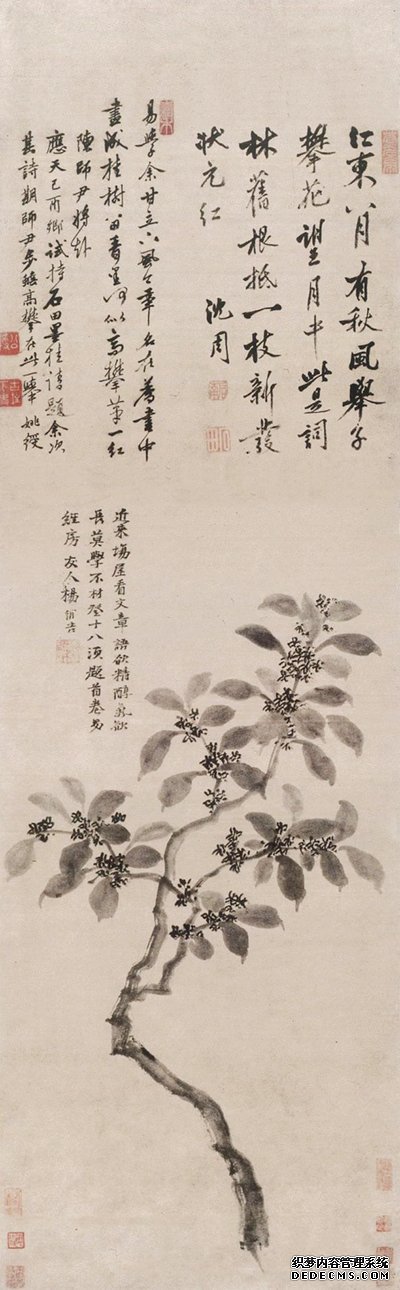 江東八月有秋風舉子
攀花望月中此是詞
林舊根柢一枝新發
狀元紅 沈周
易學余甘立下風文章名在薦書中
畫成桂樹留青眼何似高攀第一紅
陳師尹將赴
應天己酉鄉試持石田墨桂請題余次
其詩期師尹步蟾高攀在此一舉 姚綬
近來場屋看文章語欲精醇氣欲
長莫學不材登十八須題首卷易
經房 友人楊循吉
织梦内容管理系统
DEDECMS.COM